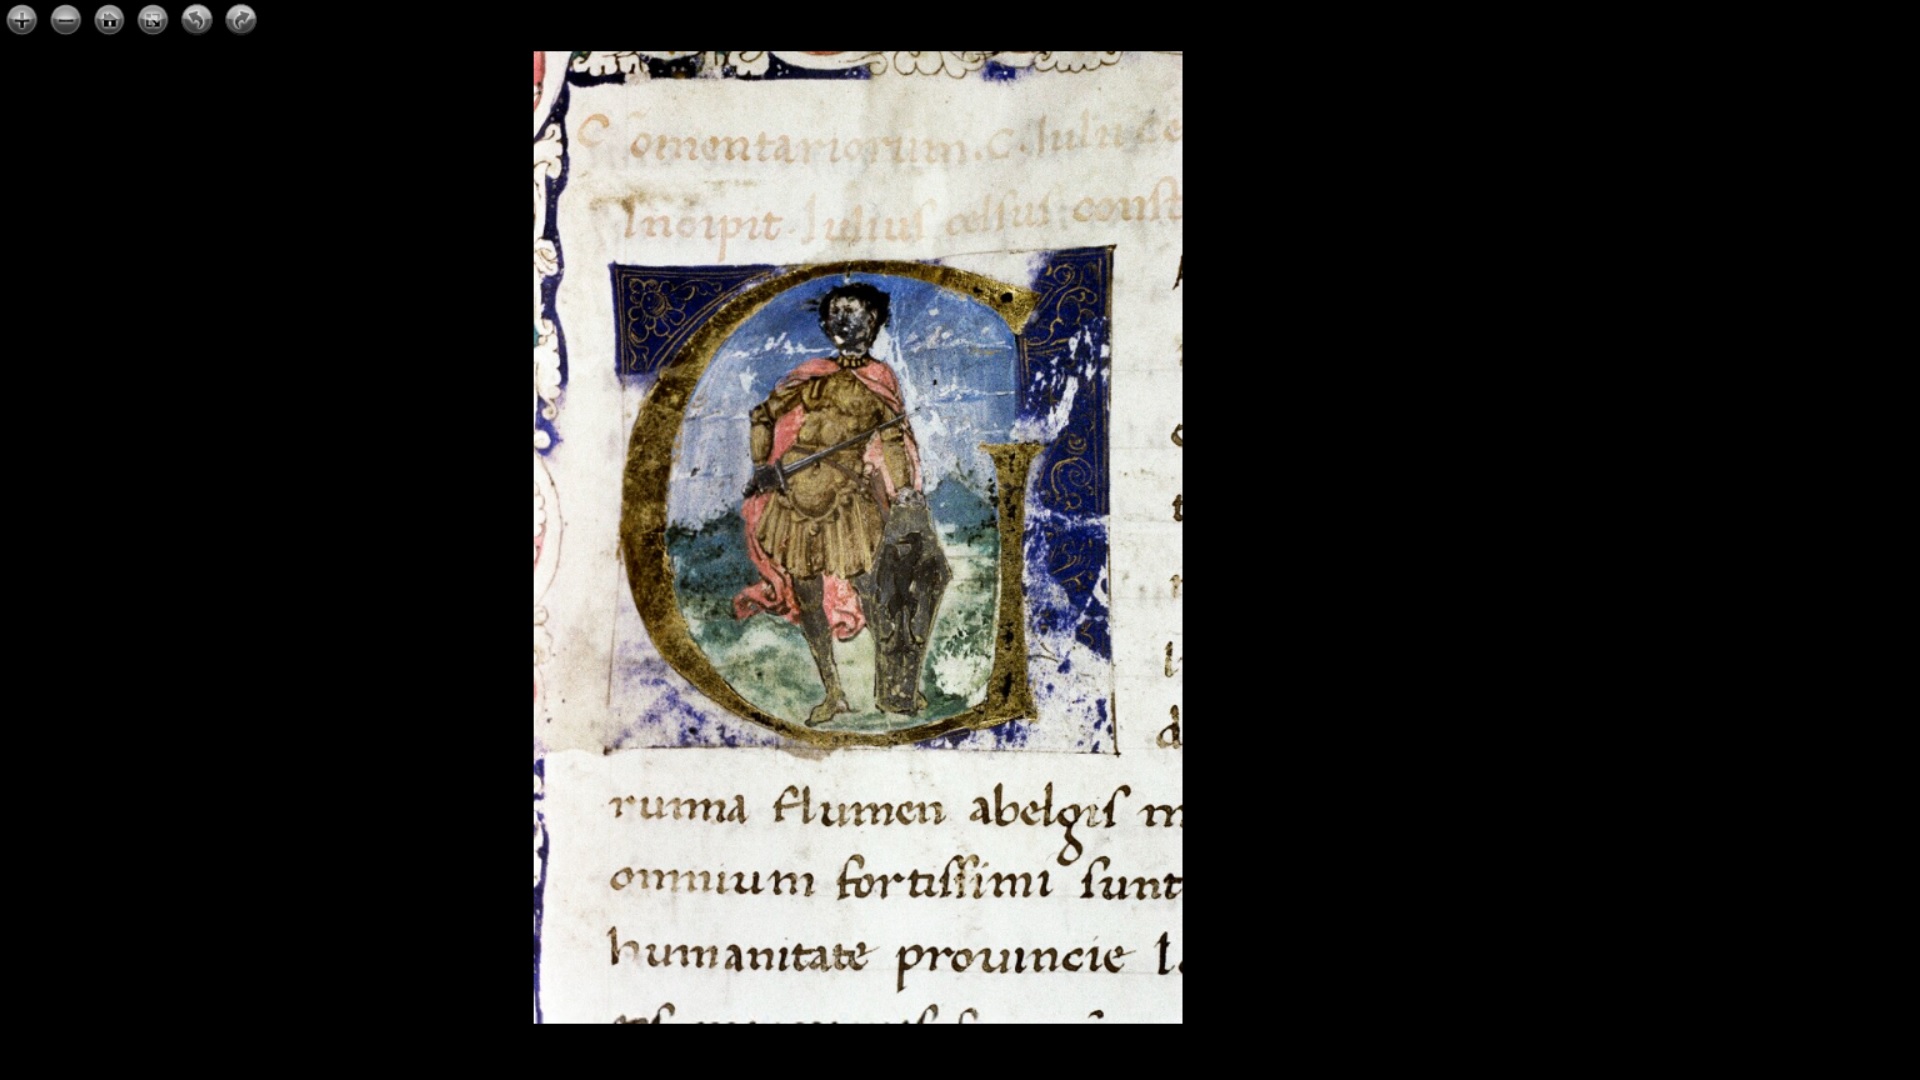 Comentariorum. C. Iulii Ce
Incipit. Iulius celsus const
G
runna flumen abelgis m
omnium fortissimi sunt
humanitate prouincie l